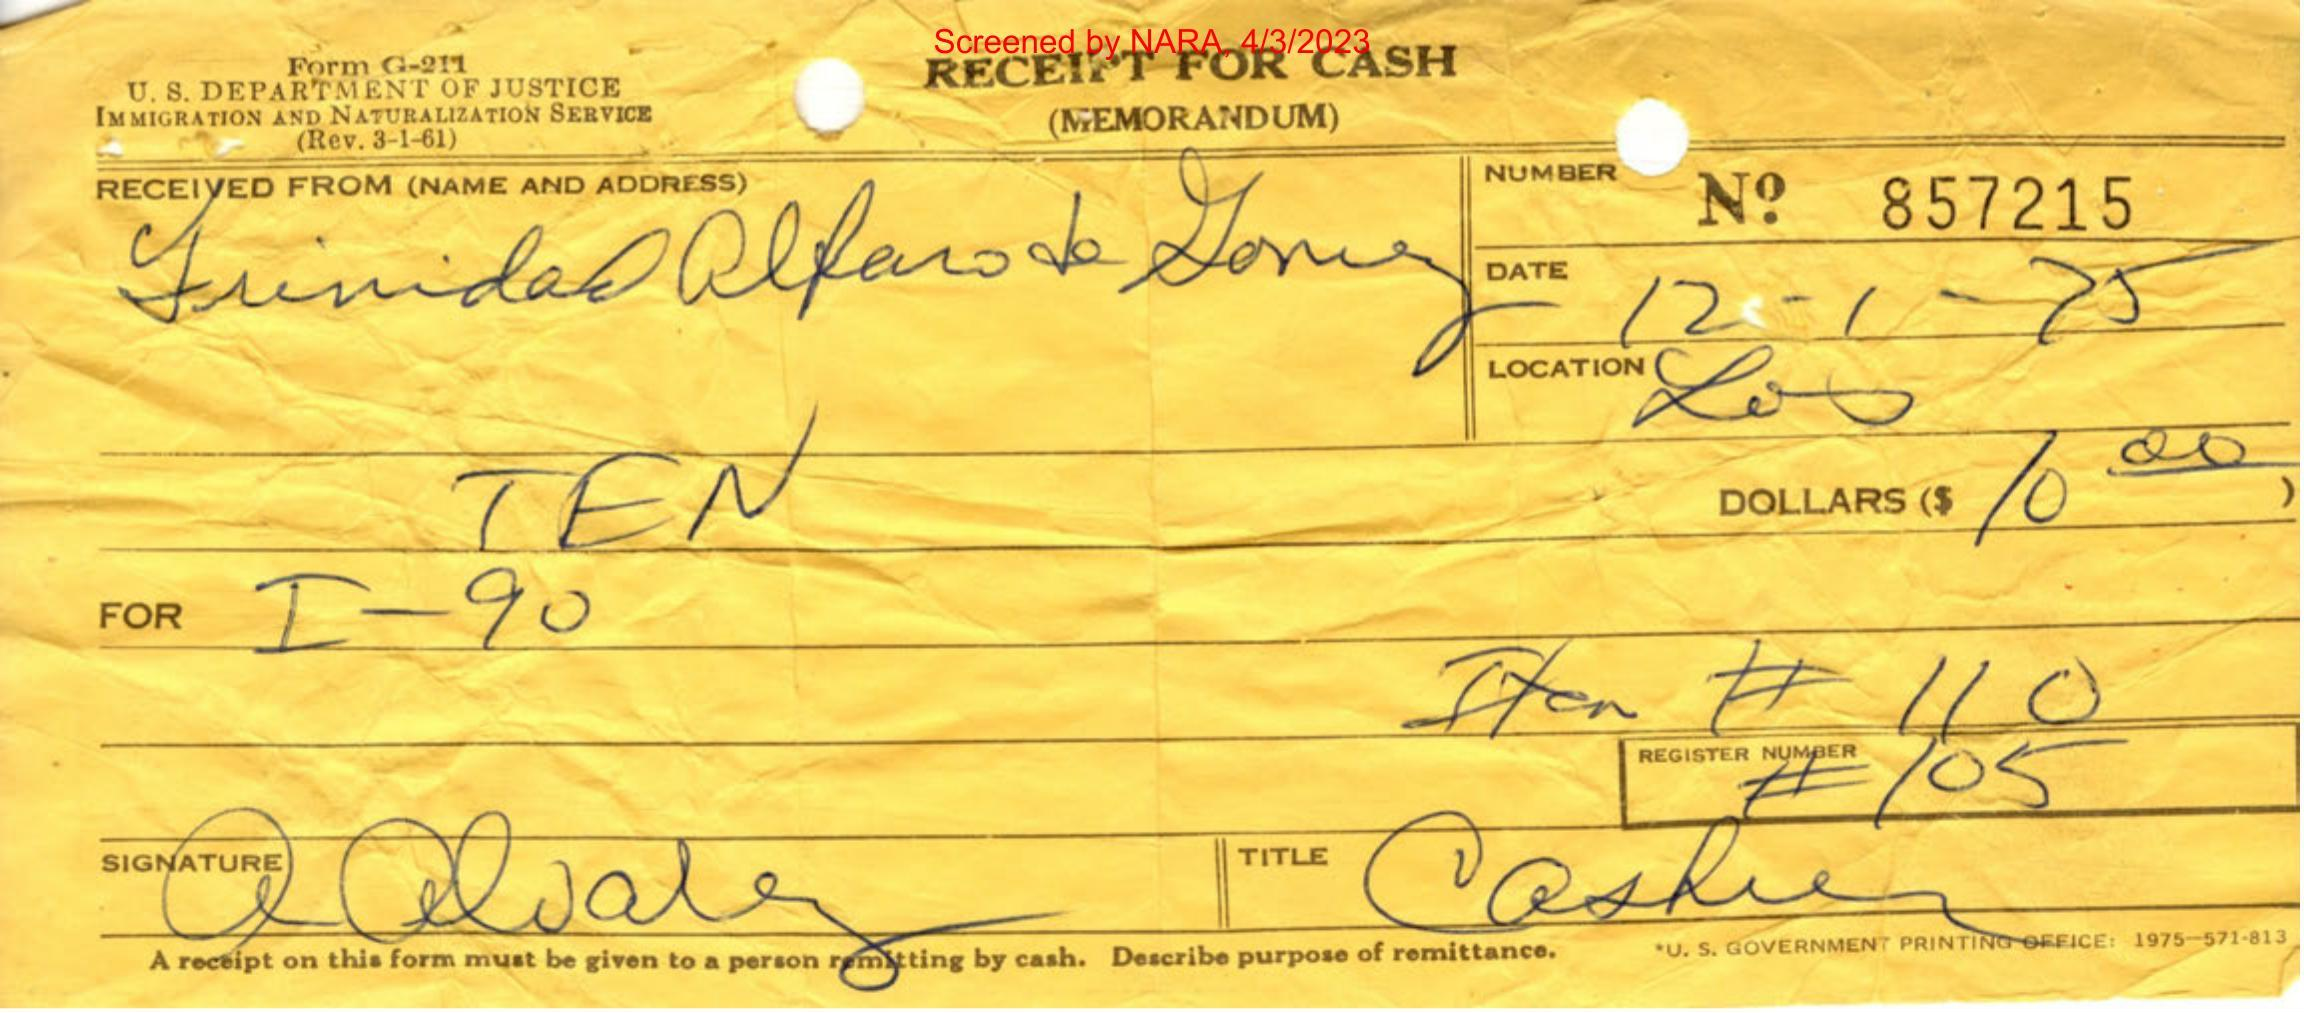 Screened by NARA, 4/3/2023
Form G-211
U. S. DEPARTMENT OF JUSTICE
IMMIGRATION AND NATURALIZATION SERVICE
(Rev. 3-1-61)
RECEIPT FOR CASH
(MEMORANDUM)
RECEIVED FROM (NAME AND ADDRESS)
Trinidad Alfaro de Gomez
NUMBER
Nº 857215
DATE 12-1-75
LOCATION Los
TEN DOLLARS ($ 10 00 )
FOR I-90
Item # 110
REGISTER NUMBER
# 105
SIGNATURE A Alvarez
TITLE Cashier
A receipt on this form must be given to a person remitting by cash. Describe purpose of remittance.
*U. S. GOVERNMENT PRINTING OFFICE: 1975-571-813